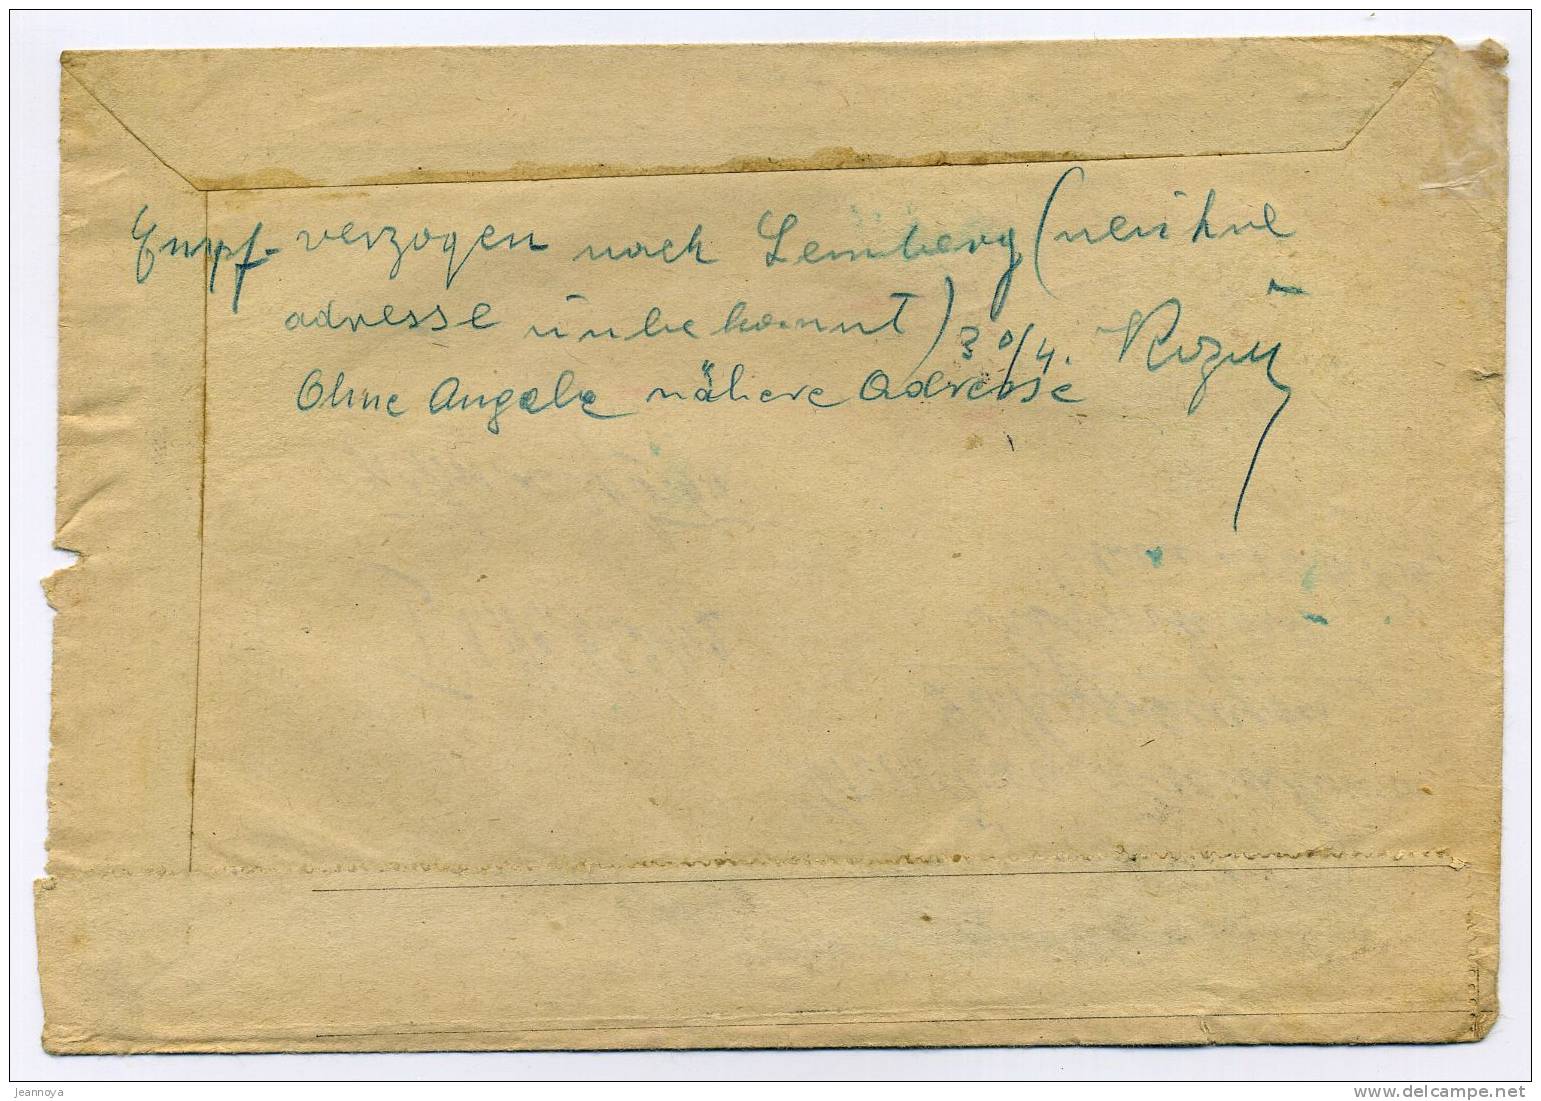 Empf. verzogen nach Lemberg (
adresse unbekannt) 30/4.
Ohne Angabe nähere Adresse
jeannoya
www.delcampe.net